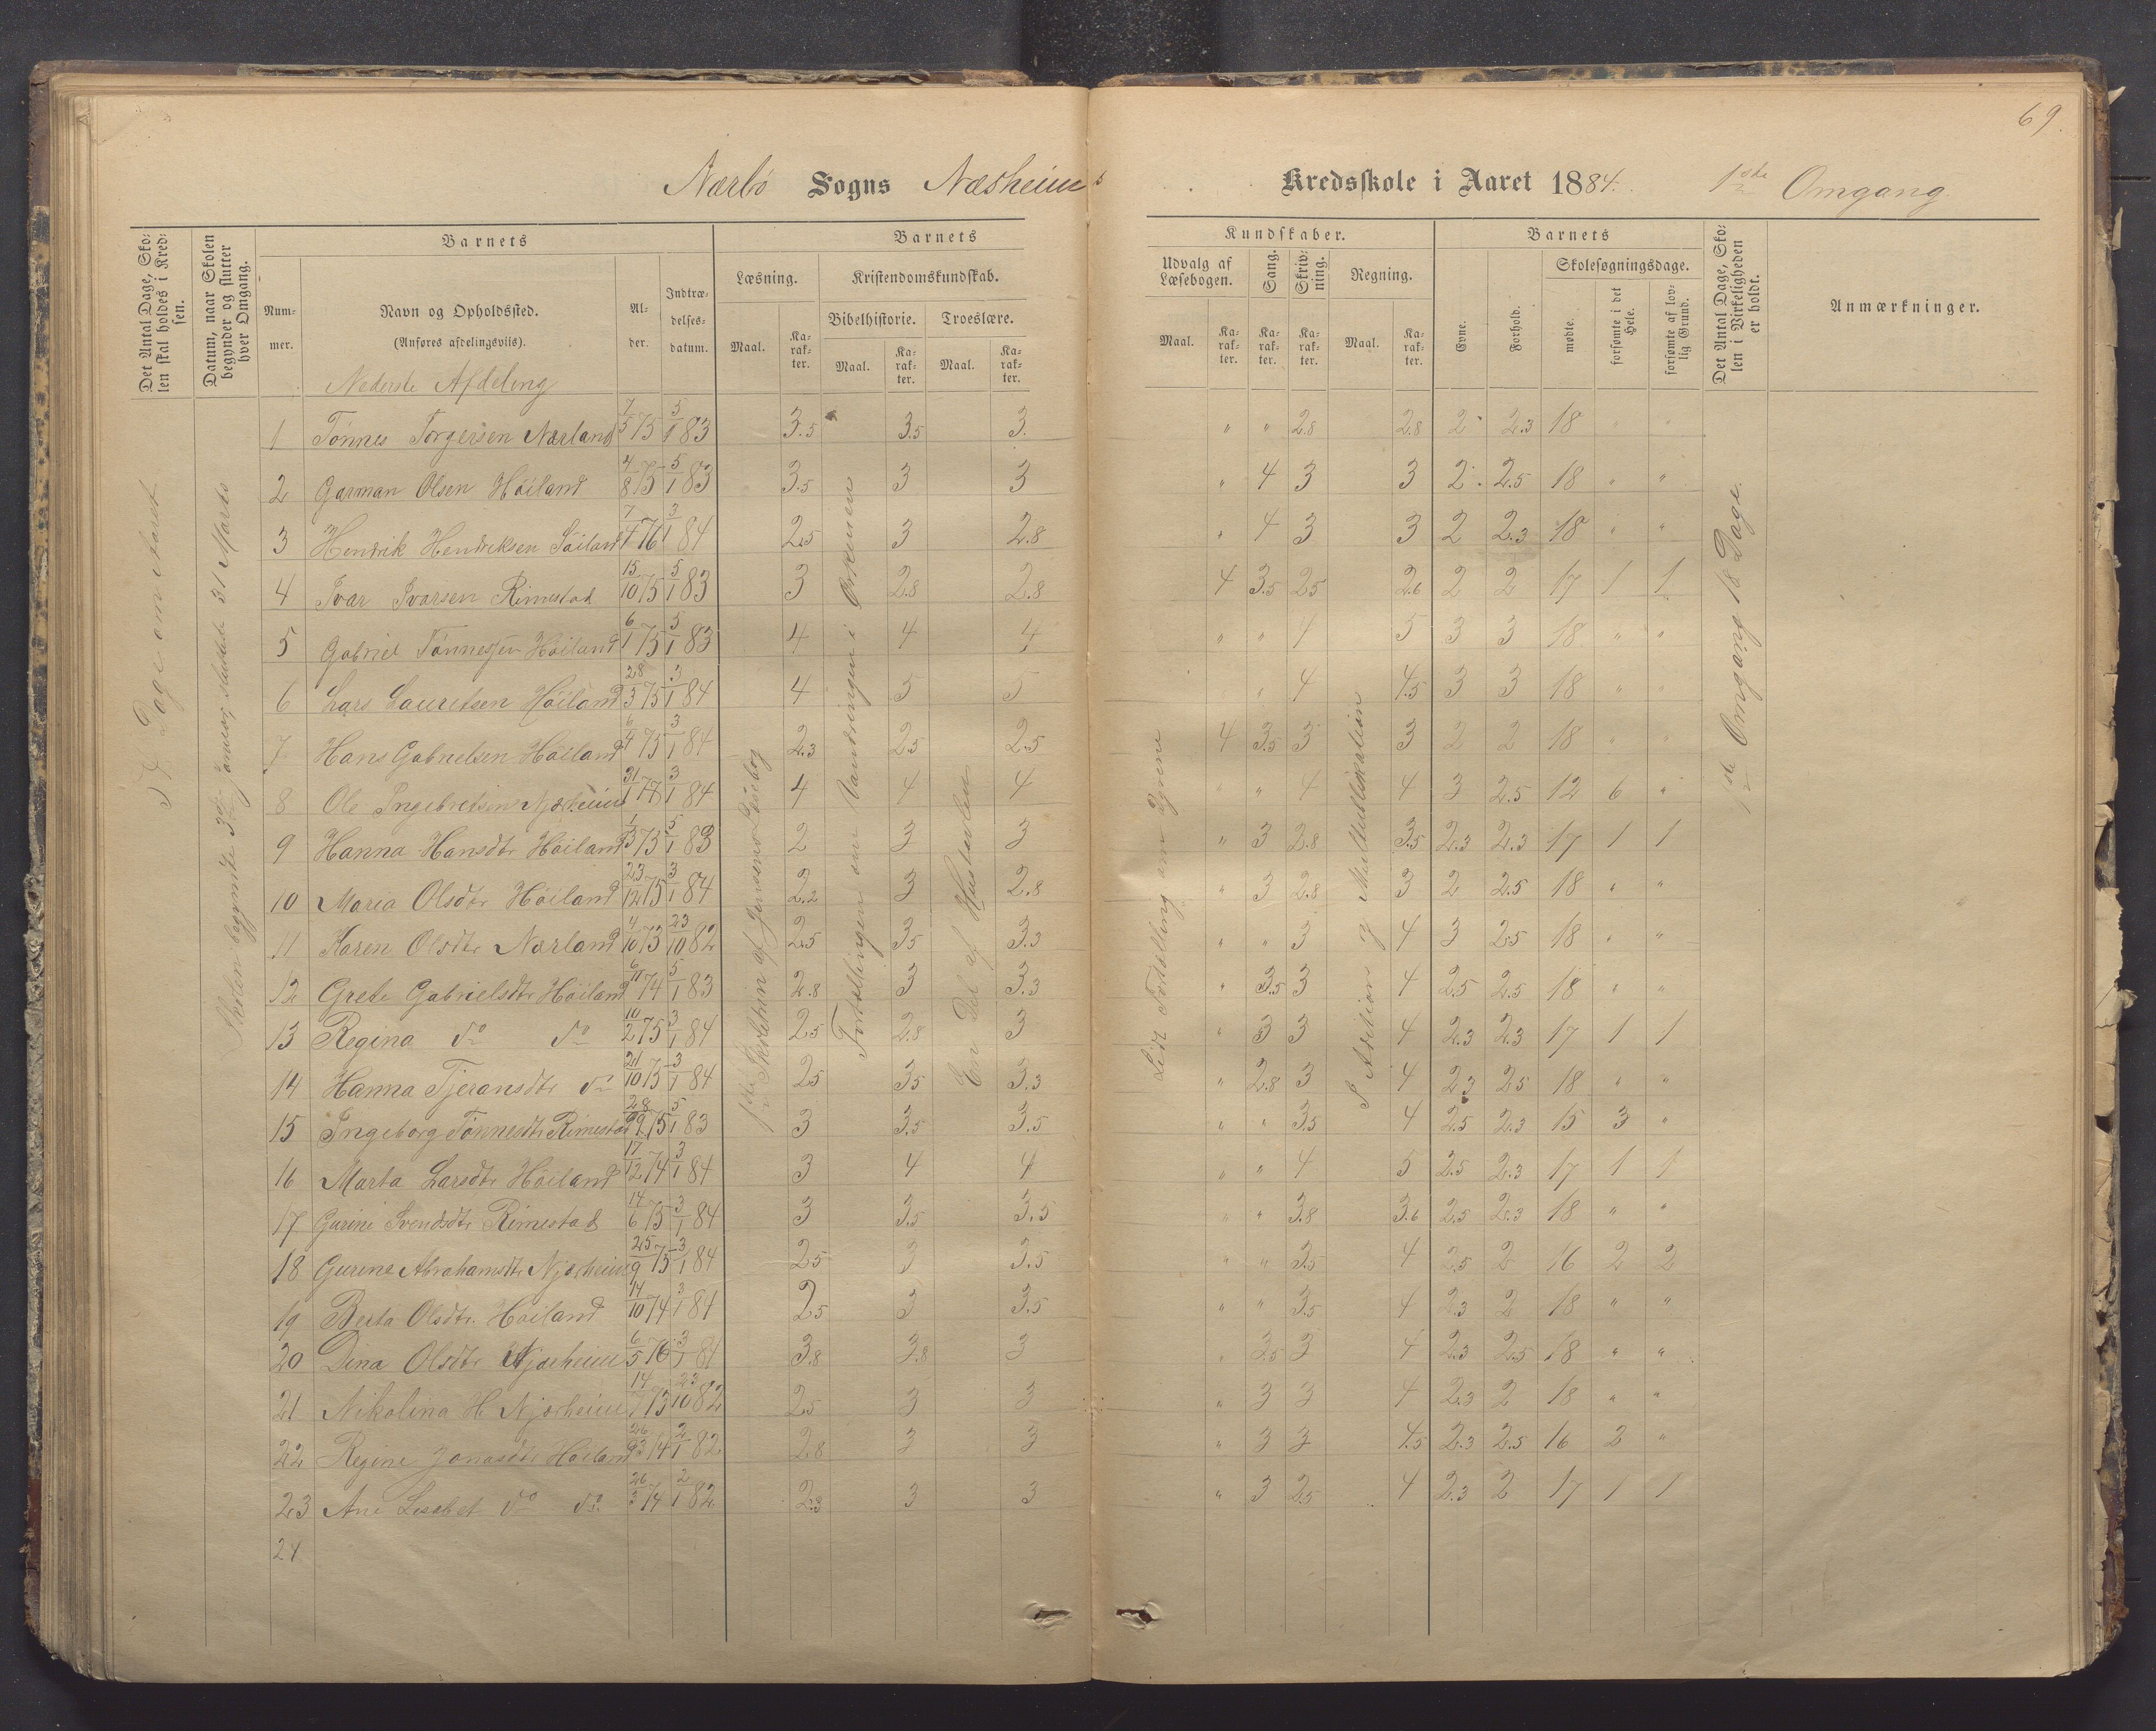 69.
Nærbø Sogns Næsheims Kredsskole i Aaret 1884. 1ste Omgang
Det Antal Dage, Skolen skal holdes i Kredsen.
Datum, naar Skolen begynder og slutter hver Omgang.
Barnets
Nummer.
Navn og Opholdssted.
(Anføres afdelingsviis).
Alder.
Indtrædelsesdatum.
Barnets Kundskaber.
Læsning. Kristendomskundskab. Udvalg af Læsebogen. Sang. Skrivning. Regning.
Bibelhistorie. Troeslære.
Maal. Karakter. Maal. Karakter. Maal. Karakter. Maal. Karakter. Karakter. Karakter. Maal. Karakter.
Barnets
Evne. Forhold. Skolesøgningsdage.
mødte. forsømte i det Hele. forsømte af lovlig Grund.
Det Antal Dage, Skolen i Virkeligheden er holdt.
Anmærkninger.
Nederste Afdeling
Dage om Aaret
Skolen begyndte 3die Januar, sluttede 31 Marts
1ste Skoletrin af Jensens Læsebog
Fortællingen om Vandringen i Ørkenen
En Del af Hustavlen
Lidt Fortælling om Dyrene
S Addition og Multiplikation
1ste Omgang 18 Dage.
1 Tønnes Torgersen Nærland 7/5 75 5/1 83 3.5 3.5 3. " " 2.8 2.8 2 2.3 18 " "
2 Garman Olsen Höiland 4/8 75 5/1 83 3.5 3 3 " 4 3 3 2 2.5 18 " "
3 Hendrik Hendriksen Höiland 7/1 76 3/1 84 2.5 3 2.8 " 4 3 3 2 2.3 18 " "
4 Ivar Ivarsen Rimestad 15/10 75 5/1 83 3 2.8 2.8 4 3.5 2.5 2.6 2 2 17 1 1
5 Gabriel Tönnessen Höiland 6/1 75 5/1 83 4 4 4 " " 4 5 3 3 18 " "
6 Lars Lauretsen Höiland 28/3 75 3/1 84 4 5 5 " 4 4.5 3 3 18 " "
7 Hans Gabrielsen Höiland 6/4 75 3/1 84 2.3 2.5 2.5 4 3.5 3 3 2 2 18 " "
8 Ole Ingebretsen Njærheim 31/1 78 3/1 84 4 4 4 " " 4 4 3 2.5 12 6 "
9 Hanna Hansdtr Höiland 1/3 73 5/1 83 2 3 3 " 3 2.8 3.5 2.3 2.3 17 1 1
10 Maria Olsdtr Höiland 23/12 75 3/1 84 2.2 3 2.8 " 3 2.8 3 2 2.5 18 " "
11 Karen Olsdtr Nærland 4/10 73 23/10 82 2.5 3.5 3.3 " " 3 4 3 2.5 18 " "
12 Grete Gabrielsdtr Höiland 6/11 74 5/1 83 2.8 3 3.3 " 3.5 3 4 2.5 2.5 18 " "
13 Regina do do 10/2 75 3/1 84 2.5 2.8 3 " 3 3 4 2.3 2.3 17 1 1
14 Hanna Tjeransdtr do 21/10 75 3/1 84 2.5 3.5 3.3 " 2.8 3 4 2.3 2.5 18 " "
15 Ingeborg Tönnesdtr Rimestad 28/9 75 5/1 83 3 3.5 3.5 " " 3.5 4 2.5 2.3 15 3 "
16 Marta Larsdtr Höiland 17/12 74 3/1 84 3 4 4 " " 4 5 2.5 2.3 17 1 1
17 Gurine Svendsdtr Rimestad 14/6 75 3/1 84 3 3.5 3.5 " " 3.8 3.6 2.5 2.3 18 " "
18 Gurine Abrahamsdtr Njærheim 25/9 75 3/1 84 2.5 3 3.5 " " 3.5 4 2.5 2 16 2 2
19 Berta Olsdtr. Höiland 14/10 74 3/1 84 2.5 3 3.5 " " 3.5 4 2.3 2 18 " "
20 Dina Olsdtr Njærheim 6/5 76 3/1 84 3.8 3.8 3 " 3.5 3 4 2.3 2.5 18 " "
21 Nikolina H Njærheim 14/7 73 23/10 82 2.5 3 3 " 3 3 4 2.3 2 18 " "
22 Regine Jonasdtr Höiland 74 2/1 82 2.8 3 3 " 3 3 4.5 2.3 2.5 16 2 "
23 Ane Lisabet do do 26/3 74 2/1 82 2.3 3 3 " 3 2.5 4 2.3 2 17 1 1
24